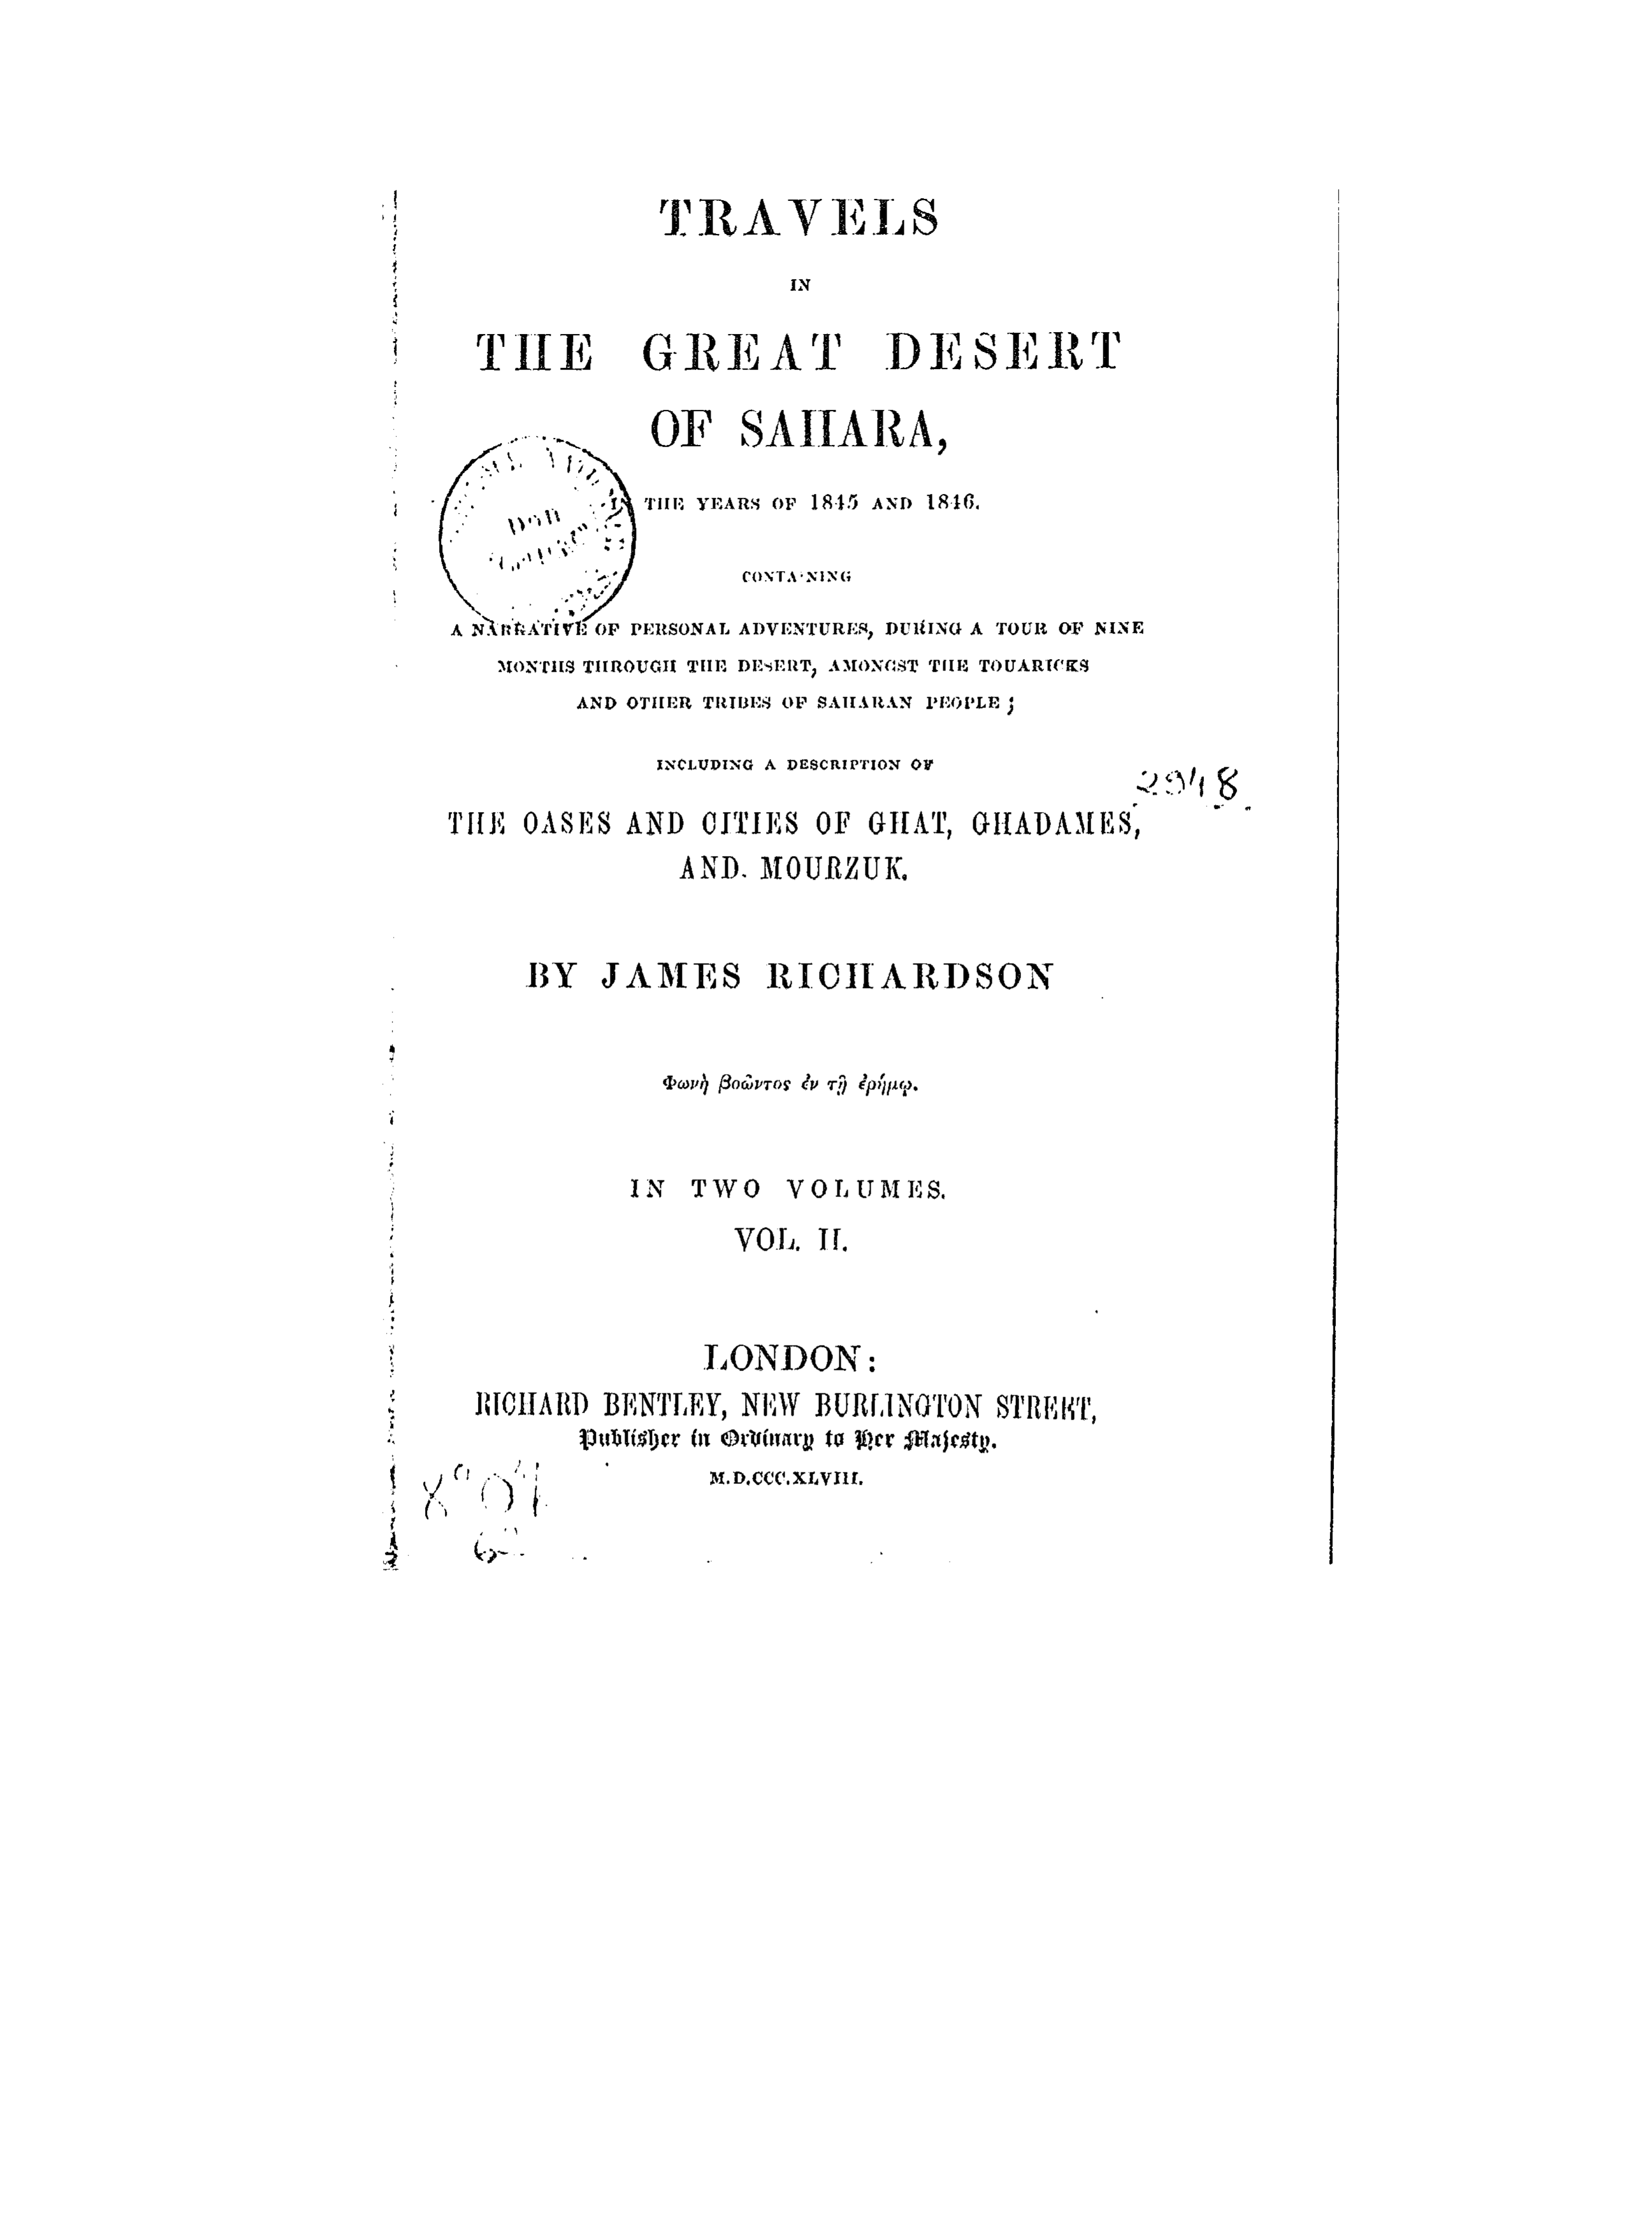 TRAVELS
IN
THE GREAT DESERT
OF SAHARA,
IN THE YEARS OF 1845 AND 1846.
CONTAINING
A NARRATIVE OF PERSONAL ADVENTURES, DURING A TOUR OF NINE
MONTHS THROUGH THE DESERT, AMONGST THE TOUARICKS
AND OTHER TRIBES OF SAHARAN PEOPLE;
INCLUDING A DESCRIPTION OF
2948
THE OASES AND CITIES OF GHAT, GHADAMES,
AND MOURZUK.
BY JAMES RICHARDSON
Φωνὴ βοῶντος ἐν τῇ ἐρήμῳ.
IN TWO VOLUMES.
VOL. II.
LONDON:
RICHARD BENTLEY, NEW BURLINGTON STREET,
Publisher in Ordinary to Her Majesty.
M.D.CCC.XLVIII.